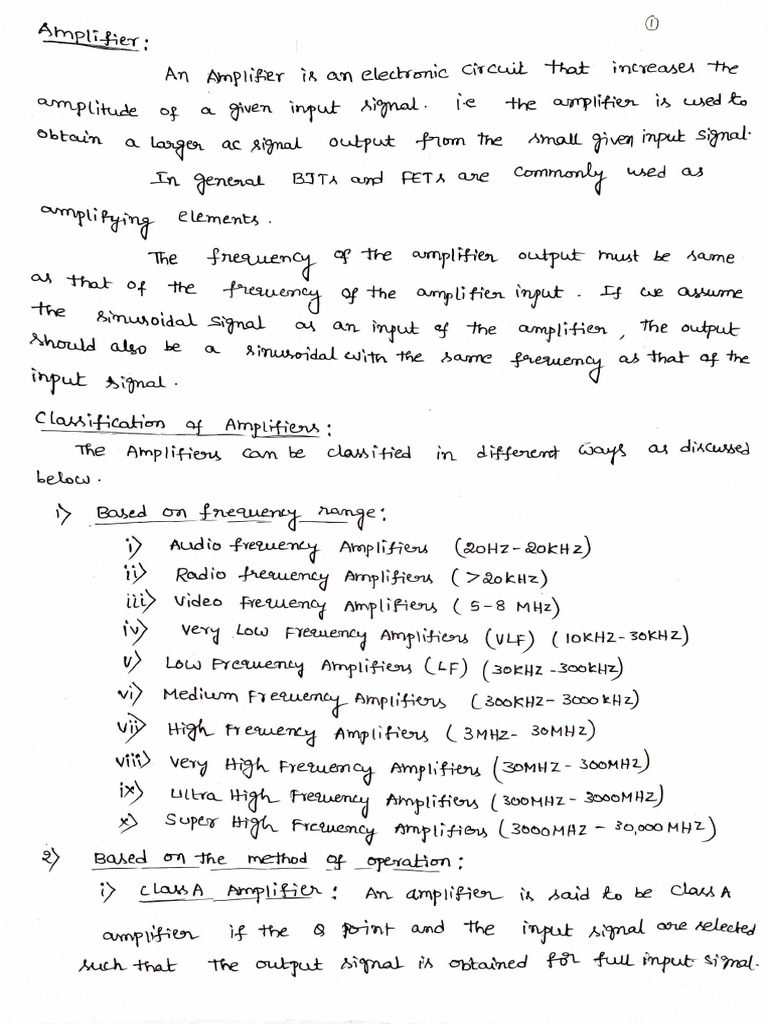 ①
Amplifier:
An Amplifier is an electronic circuit that increases the
amplitude of a given input signal. i.e the amplifier is used to
obtain a larger ac signal output from the small given input signal.
In general BJTs and FETs are commonly used as
amplifying elements.
The frequency of the amplifier output must be same
as that of the frequency of the amplifier input. If we assume
the sinusoidal signal as an input of the amplifier, the output
should also be a sinusoidal with the same frequency as that of the
input signal.
Classification of Amplifiers:
The Amplifiers can be classified in different ways as discussed
below.
1) Based on frequency range:
i) Audio frequency Amplifiers (20HZ-20KHZ)
ii) Radio frequency Amplifiers (>20KHZ)
iii) Video Frequency Amplifiers (5-8 MHZ)
iv) Very Low Frequency Amplifiers (VLF) (10KHZ-30KHZ)
v) Low Frequency Amplifiers (LF) (30KHZ-300KHZ)
vi) Medium Frequency Amplifiers (300KHZ-3000KHZ)
vii) High Frequency Amplifiers (3MHZ- 30MHZ)
viii) Very High Frequency Amplifiers (30MHZ-300MHZ)
ix) Ultra High Frequency Amplifiers (300MHZ-3000MHZ)
x) Super High Frequency Amplifiers (3000MHZ - 30,000MHZ)
2) Based on the method of operation:
i) Class A Amplifier: An amplifier is said to be Class A
amplifier if the Q point and the input signal are selected
such that the output signal is obtained for full input signal.